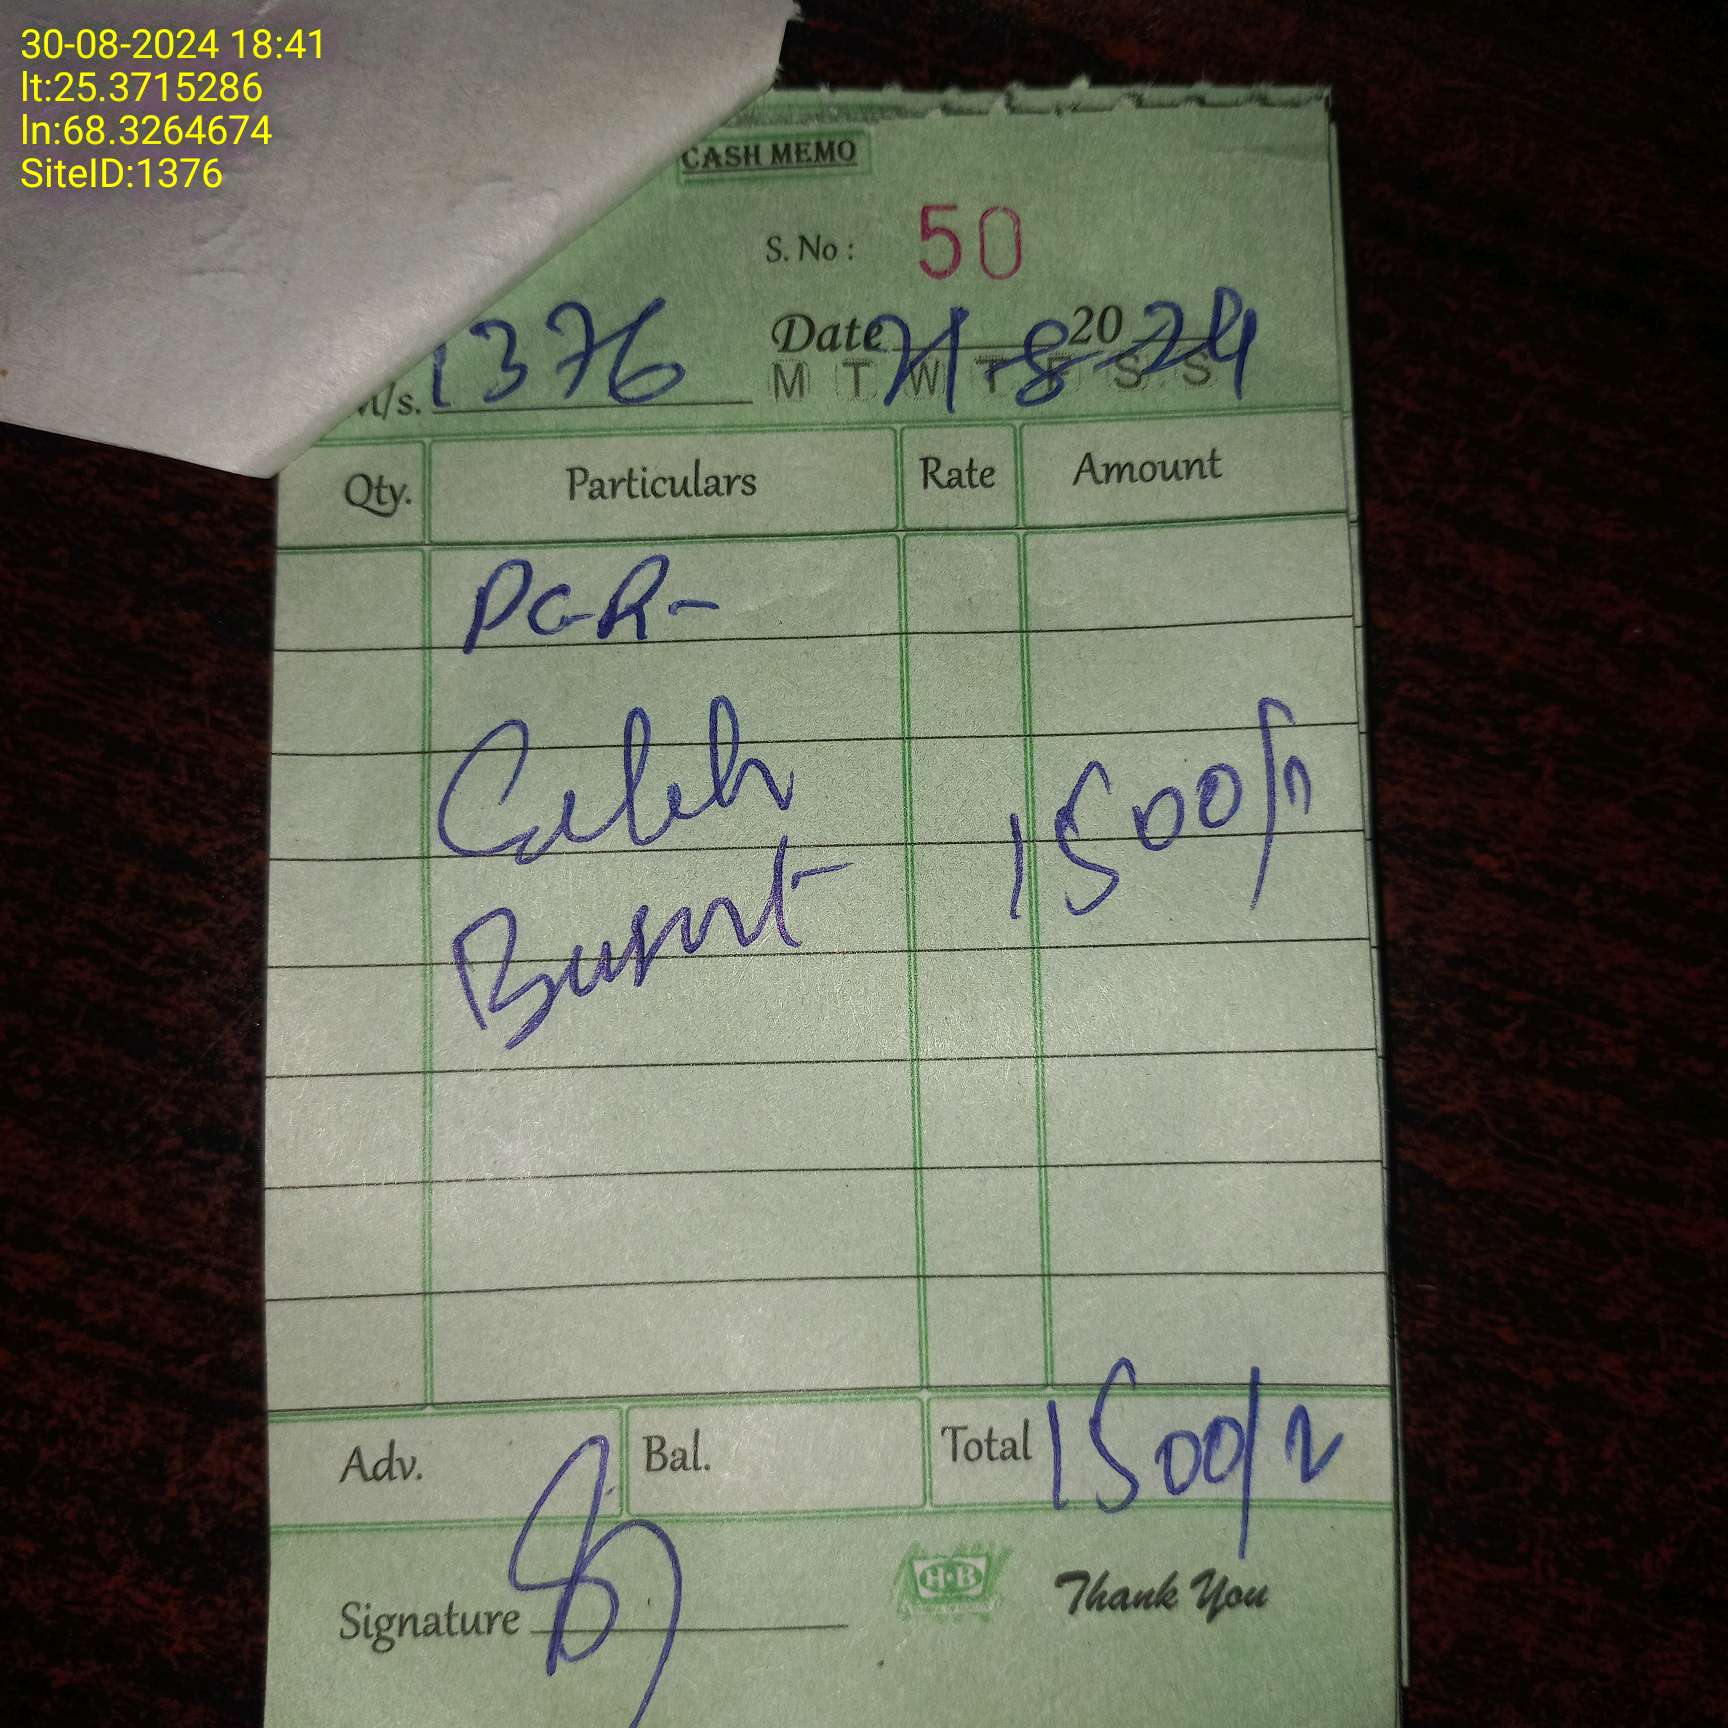 30-08-2024 18:41
lt:25.3715286
ln:68.3264674
SiteID:1376
CASH MEMO
S. No : 50
M/s. 1376 Date 21-8-2024
M T W T F S S
Qty. Particulars Rate Amount
1500/
Adv. Bal. Total 1500/
Signature
H·B
Thank You